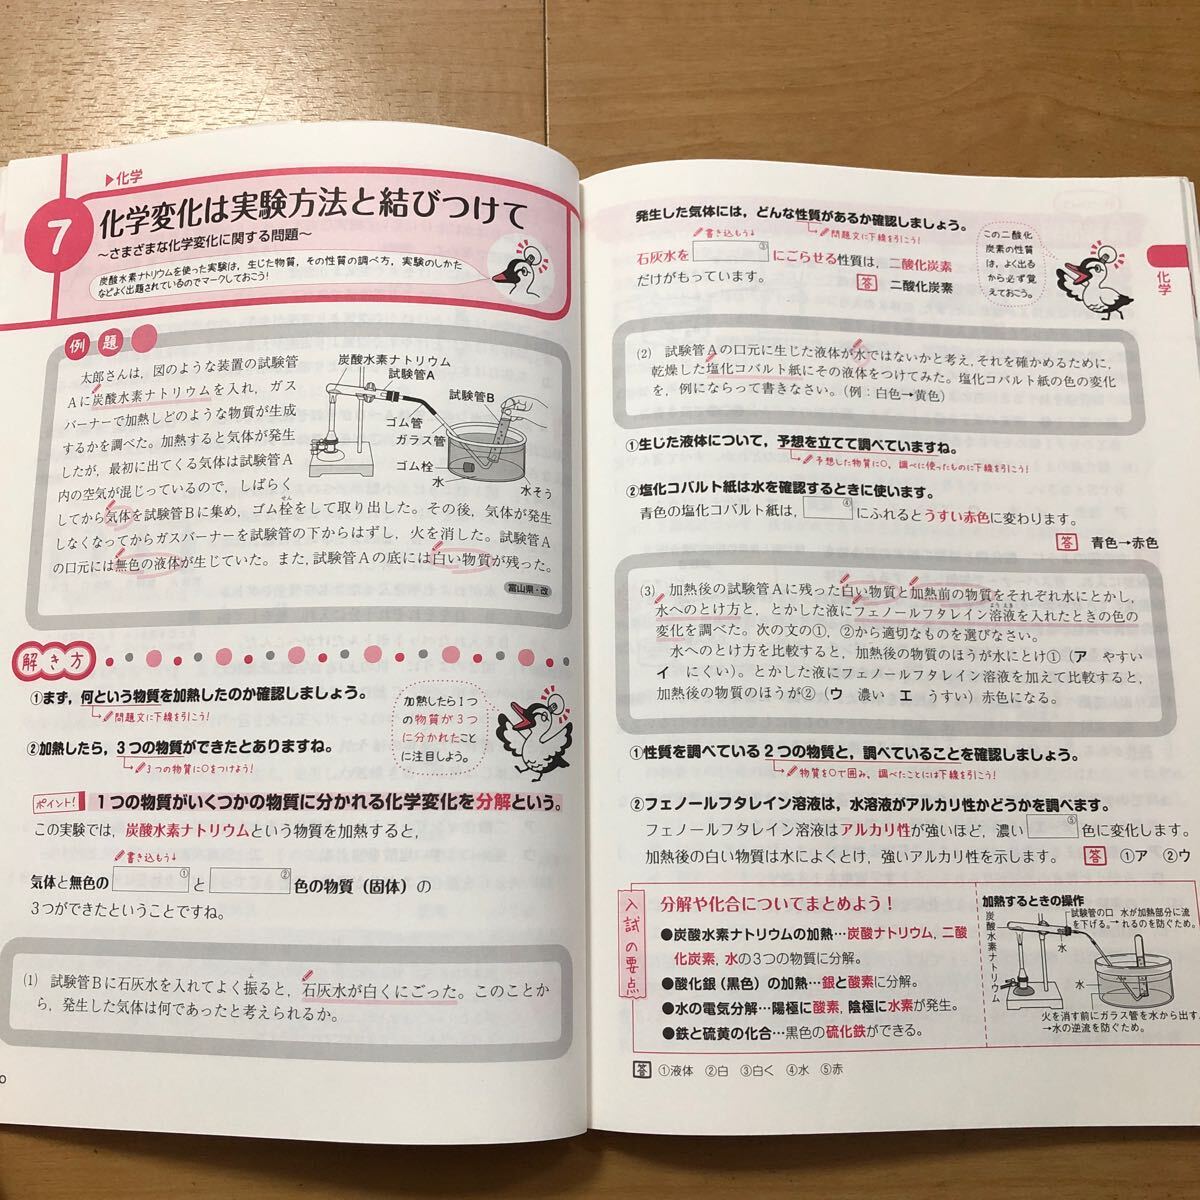 ▶化学
7
化学変化は実験方法と結びつけて
～さまざまな化学変化に関する問題～
炭酸水素ナトリウムを使った実験は，生じた物質，その性質の調べ方，実験のしかた
などよく出題されているのでマークしておこう！
例題
太郎さんは，図のような装置の試験管
Aに炭酸水素ナトリウムを入れ，ガス
バーナーで加熱しどのような物質が生成
するかを調べた。加熱すると気体が発生
したが，最初に出てくる気体は試験管A
内の空気が混じっているので，しばらく
してから気体を試験管Bに集め，ゴム栓をして取り出した。その後，気体が発生
せん
しなくなってからガスバーナーを試験管の下からはずし，火を消した。試験管A
の口元には無色の液体が生じていた。また，試験管Aの底には白い物質が残った。
富山県・改
炭酸水素ナトリウム
試験管A
試験管B
ゴム管
ガラス管
ゴム栓
水
水そう
解き方
①まず，何という物質を加熱したのか確認しましょう。
問題文に下線を引こう！
②加熱したら，3つの物質ができたとありますね。
3つの物質に○をつけよう！
加熱したら1つ
の物質が3つ
に分かれたこと
に注目しよう。
ポイント！ 1つの物質がいくつかの物質に分かれる化学変化を分解という。
この実験では，炭酸水素ナトリウムという物質を加熱すると，
書き込もう↓
気体と無色の ① と ② 色の物質（固体）の
3つができたということですね。
(1) 試験管Bに石灰水を入れてよく振ると，石灰水が白くにごった。このことか
ふ
ら，発生した気体は何であったと考えられるか。
発生した気体には，どんな性質があるか確認しましょう。
書き込もう↓
問題文に下線を引こう！
石灰水を ③ にごらせる性質は，二酸化炭素
だけがもっています。
答 二酸化炭素
この二酸化
炭素の性質
は，よく出る
から必ず覚
えておこう。
化学
(2) 試験管Aの口元に生じた液体が水ではないかと考え，それを確かめるために，
乾燥した塩化コバルト紙にその液体をつけてみた。塩化コバルト紙の色の変化
を，例にならって書きなさい。（例：白色→黄色）
①生じた液体について，予想を立てて調べていますね。
予想した物質に○，調べに使ったものに下線を引こう！
②塩化コバルト紙は水を確認するときに使います。
青色の塩化コバルト紙は， ④ にふれるとうすい赤色に変わります。
答 青色→赤色
(3) 加熱後の試験管Aに残った白い物質と加熱前の物質をそれぞれ水にとかし，
水へのとけ方と，とかした液にフェノールフタレイン溶液を入れたときの色の
ようえき
変化を調べた。次の文の①，②から適切なものを選びなさい。
水へのとけ方を比較すると，加熱後の物質のほうが水にとけ①（ア やすい
イ にくい）。とかした液にフェノールフタレイン溶液を加えて比較すると，
加熱後の物質のほうが②（ウ 濃い エ うすい）赤色になる。
①性質を調べている2つの物質と，調べていることを確認しましょう。
物質を○で囲み，調べたことには下線を引こう！
②フェノールフタレイン溶液は，水溶液がアルカリ性かどうかを調べます。
フェノールフタレイン溶液はアルカリ性が強いほど，濃い ⑤ 色に変化します。
加熱後の白い物質は水によくとけ，強いアルカリ性を示します。 答 ①ア ②ウ
入試の要点
分解や化合についてまとめよう！
●炭酸水素ナトリウムの加熱…炭酸ナトリウム，二酸
化炭素，水の3つの物質に分解。
●酸化銀（黒色）の加熱…銀と酸素に分解。
●水の電気分解…陽極に酸素，陰極に水素が発生。
●鉄と硫黄の化合…黒色の硫化鉄ができる。
加熱するときの操作
炭酸水素ナトリウム
試験管の口を下げる。→
水が加熱部分に流れるのを防ぐため。
水
水
火を消す前にガラス管を水から出す。
→水の逆流を防ぐため。
答 ①液体 ②白 ③白く ④水 ⑤赤